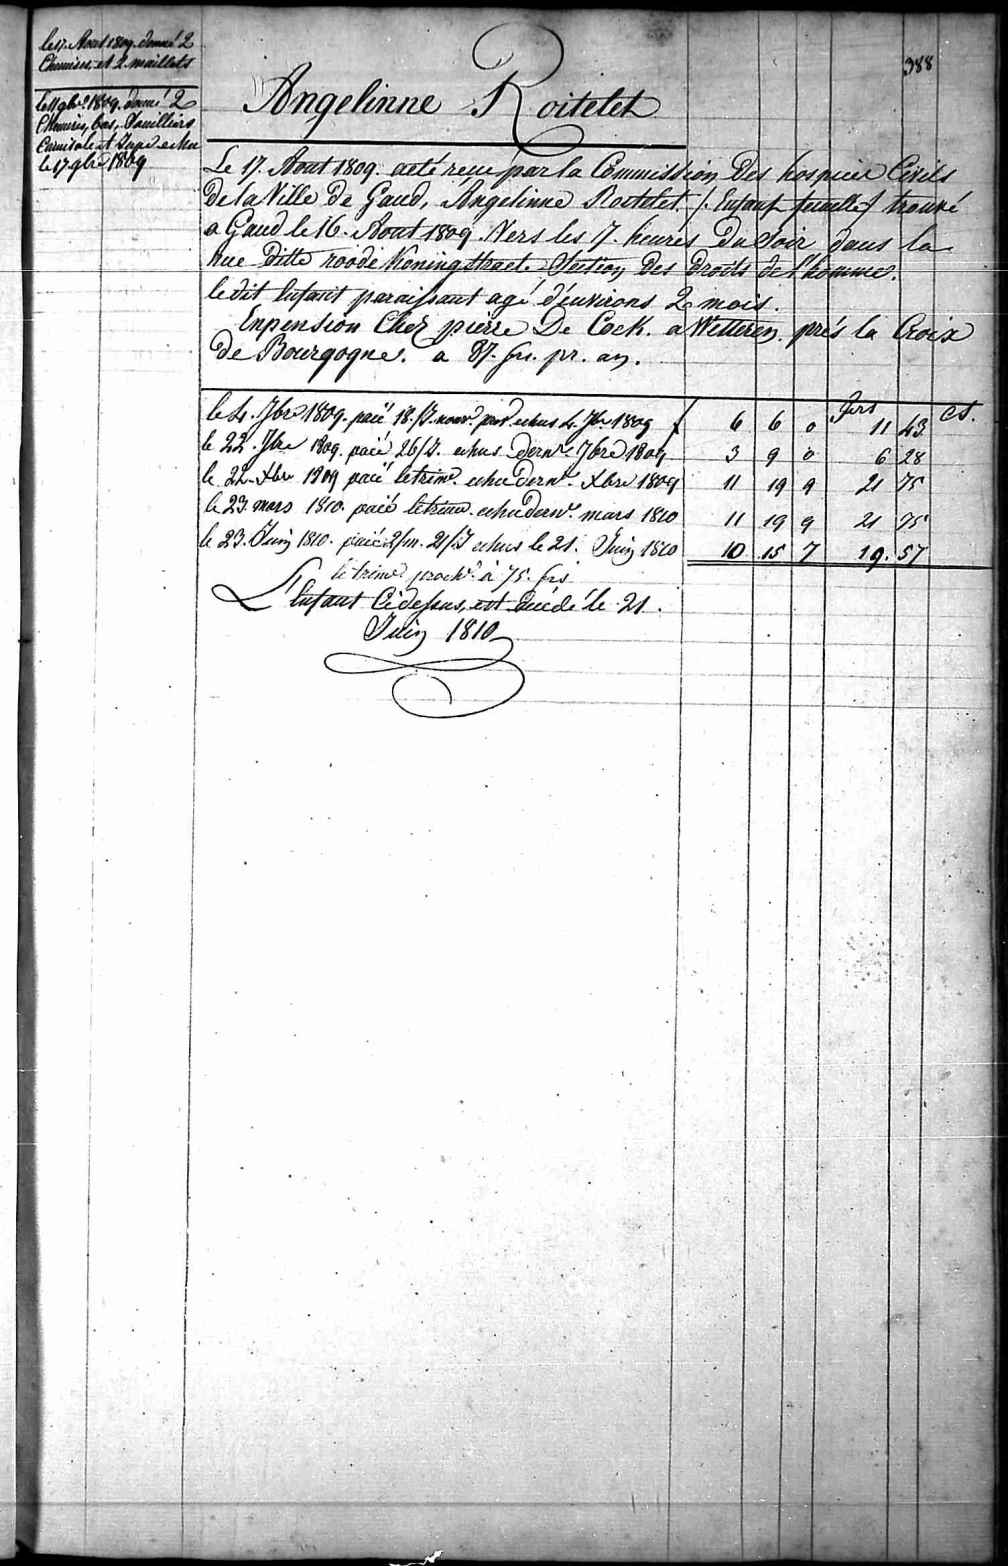 388
le 17. Aout 1809. donné 2
Chemises, et 2. maillots
le 17 9bre 1809. donné 2
Chemises, bas, Souilliers
Camisole et Jupe echu
le 17 9bre 1809
Angelinne Roitelet
Le 17. Aout 1809. a eté reçu par la Commission Des hospices Civils
De la Ville De Gand, Angelinne Roitelet. /: Enfant femelle :/ trouvé
a Gand le 16. Aout 1809. Vers les 7. heures Du Soir dans la
Rue Ditte roode Koningstraet. Section Des Droits de l'homme.
le dit Enfant paraissant agé d'environs 2 mois.
En pension Chez pierre De Cock. a Wetteren. prés la Croix
de Bourgogne. a 87. frs. pr. an.
frs cs
le 4. 7bre 1809. paié 18. /J. echus 4. 7bre 1809 6 6 0 11 43
le 22. 7bre 1809. paié 26/J. echus dernr. 7bre 1809 3 9 0 6 28
le 22. Xbre 1809 paié le trimr. echu dernr. Xbre 1809 11 19 9 21 75
le 23. mars 1810. paié le trimr. echu dernr. mars 1810 11 19 9 21 75
le 23. Juin 1810. paié 2/m. 21/J echus le 21. Juin 1810 10 15 7 19. 57
le trimr. prochn. à 75. frs
L'Enfant Cidessus, est Décédé le 21.
Juin 1810